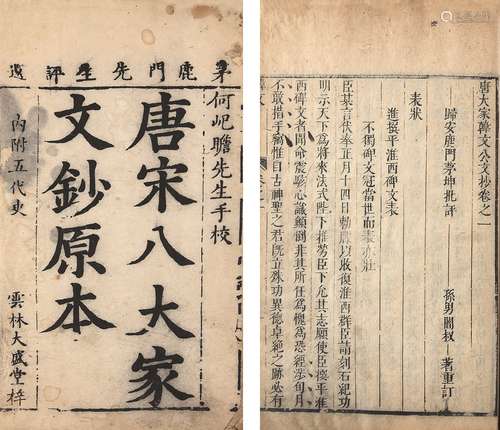 茅鹿門先生評選
何屺瞻先生手校
唐宋八大家
文鈔原本
內附五代史
雲林大盛堂梓
唐大家韓文公文抄卷之一
歸安鹿門茅坤批評
孫男闇叔 著重訂
表狀
進撰平淮西碑文表
不獨碑文冠當世而表亦壯
臣某言伏奉正月十四日勅牒以收復淮西群臣請刻石紀功
明示天下爲將來法式陛下推勞臣下允其志願使臣撰平淮
西碑文者聞命震駭心識顛倒非其所任爲愧爲恐經涉旬月
不敢措手竊惟自古神聖之君既立殊功異德卓絕之跡必有